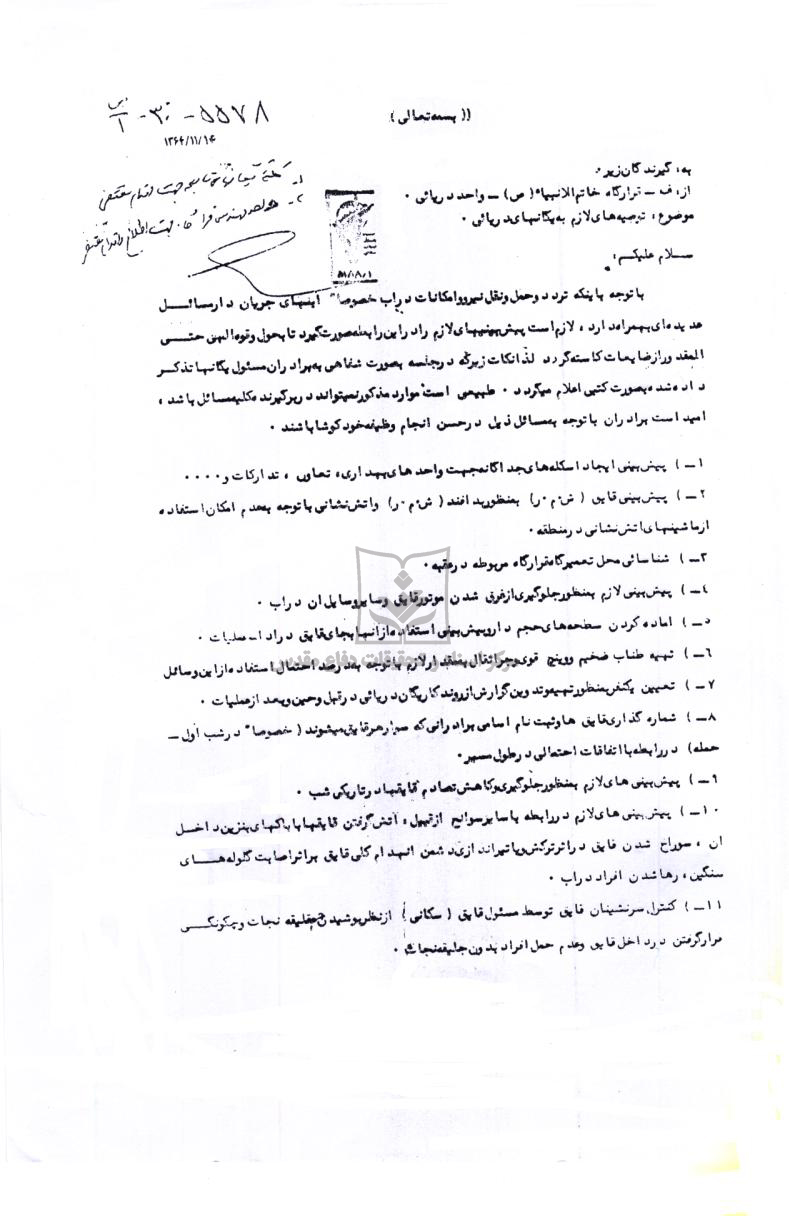 (( بسمه تعالی ))
۵۵۷۸ - ۳۰ -
۱۳۶۴/۱۱/۱۴
به : گیرندگان زیر .
از : ف – قرارگاه خاتم الانبیاء ( ص ) – واحد دریائی .
موضوع : توصیه های لازم به یگانهای دریائی .
سلام علیکم :
با توجه باینکه تردد وحمل ونقل نیرو وامکانات درآب خصوصا" آبهای جریان دار مسائل
عدیده ای بهمراه دارد ، لازم است پیش بینیهای لازم را در این رابطه صورت گیرد تا بحول وقوه الهی حتی
المقدور از ضایعات کاسته گردد لذا نکات زیر که در جلسه بصورت شفاهی به برادران مسئول یگانها تذکر
داده شده بصورت کتبی اعلام میگردد . طبیعی است موارد مذکور نمیتواند دربرگیرنده کلیه مسائل باشد ،
امید است برادران با توجه به مسائل ذیل درحسن انجام وظیفه خود کوشا باشند .
۱ – ) پیش بینی ایجاد اسکله های جداگانه جهت واحد های بهداری ، تعاون ، تدارکات و . . . .
۲ – ) پیش بینی قایق ( ش . م . ر ) بمنظور پدافند ( ش . م . ر ) واتش نشانی با توجه به عدم امکان استفاده
ازماشینهای اتش نشانی درمنطقه .
۳ – ) شناسائی محل تعمیرگاه قرارگاه مربوطه در عقبه .
۴ – ) پیش بینی لازم بمنظور جلوگیری از غرق شدن موتور قایق وسایر وسایل ان درآب .
۵ – ) اماده کردن سطحه های حجم دار وپیش بینی استفاده ازآنها بجای قایق در ادامه عملیات .
۶ – ) تهیه طناب ضخیم ووینچ قوی وجراثقال بمقدار لازم با توجه به درصد احتمال استفاده ازاین وسائل
۷ – ) تعیین یکنفر بمنظور تهیه وتدوین گزارش از روند کار یگان دریائی درقبل وحین وبعد ازعملیات .
۸ – ) شماره گذاری قایق ها وثبت نام اسامی برادرانی که سوار هر قایق میشوند ( خصوصا" درشب اول –
حمله ) دررابطه با اتفاقات احتمالی درطول مسیر .
۹ – ) پیش بینی های لازم بمنظور جلوگیری وکاهش تصادم قایقها درتاریکی شب .
۱۰ – ) پیش بینی های لازم دررابطه با سایر سوانح ازقبیل ، آتش گرفتن قایقها با باکهای بنزین داخل
ان ، سوراخ شدن قایق دراثر ترکش ویا تیراندازی دشمن انهدام کلی قایق براثر اصابت گلوله های
سنگین ، رها شدن افراد درآب .
۱۱ – ) کنترل سرنشینان قایق توسط مسئول قایق ( سکانی ) ازنظر پوشیدن جلیقه نجات وچگونگی
قرارگرفتن در داخل قایق وعدم حمل افراد بدون جلیقه نجات .